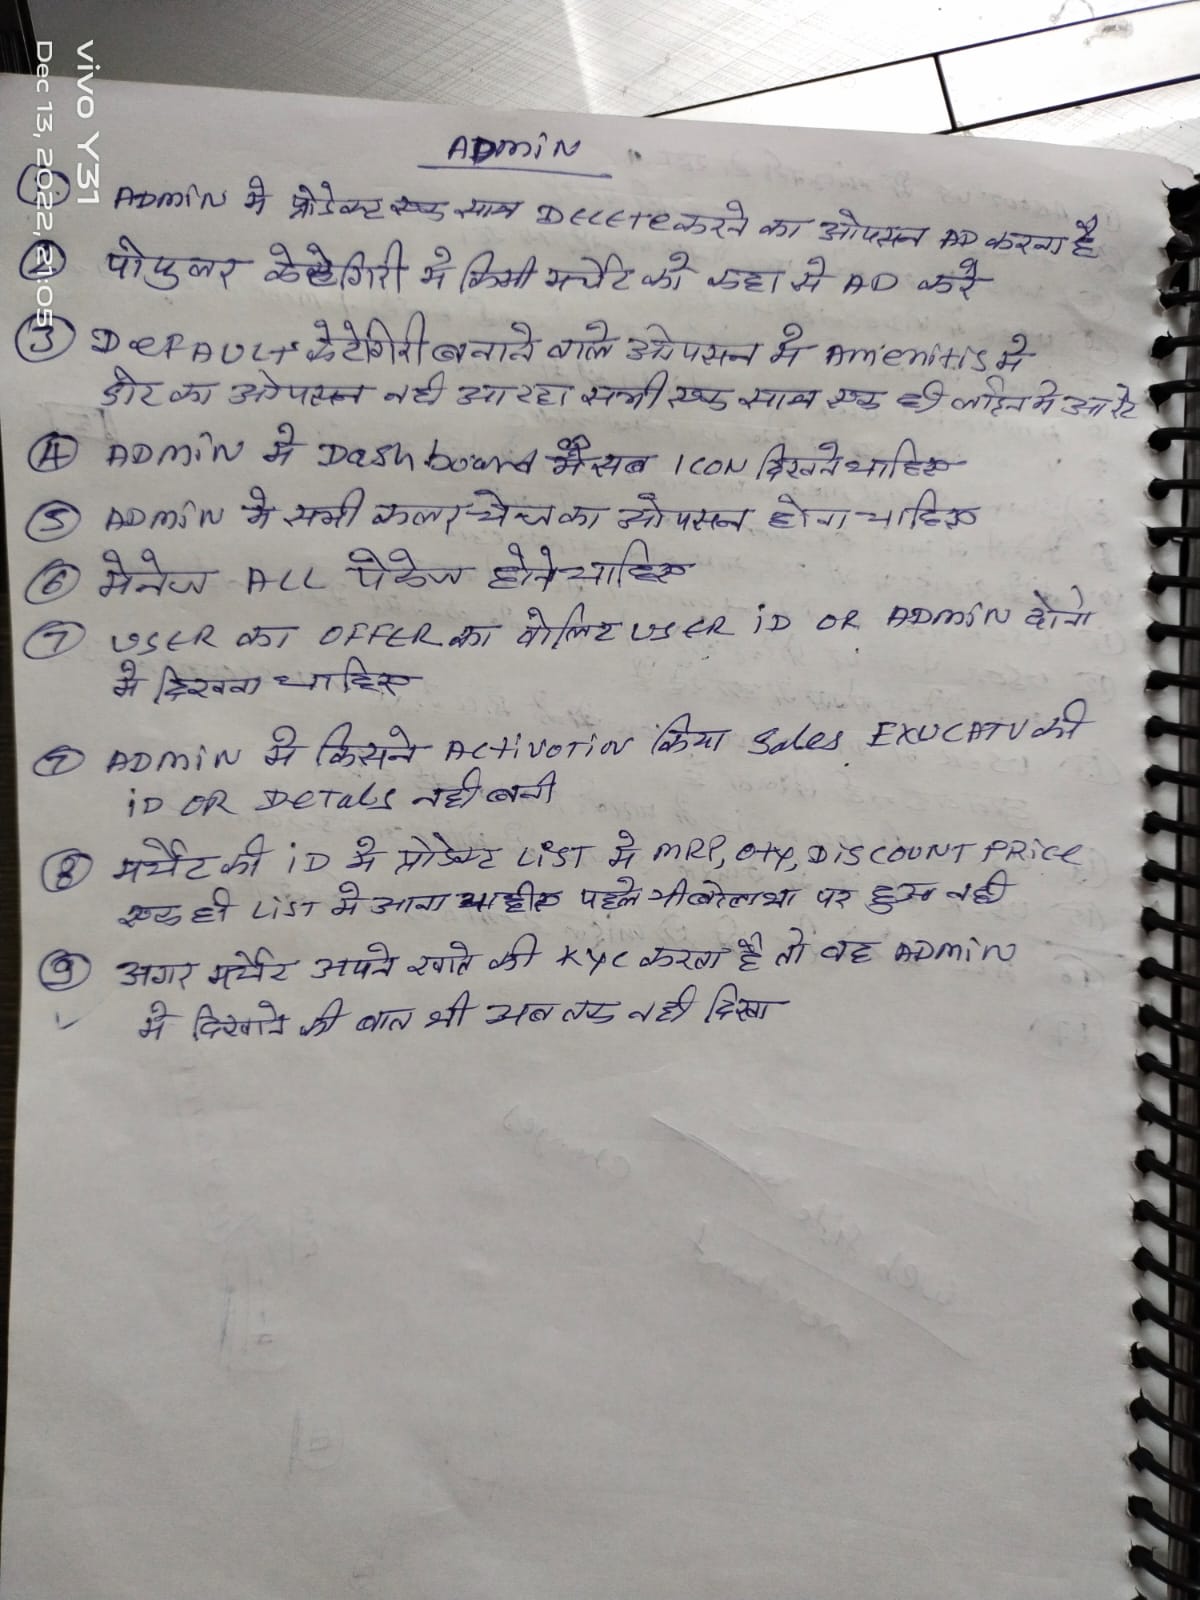 vivo Y31
Dec 13, 2022, 21:05
ADMiN
① ADMiN मे प्रोडेक्ट एक साथ DELETE करने का ओपसन AD करना है
② पोपुलर केटेगिरी मे किसी मर्चेट को कहा से AD करे
③ DeFAULT केटेगिरी बनाने वाले ओपसन मे Amenitis मे
डोट का ओपसन नही आ रहा सभी एक साथ एक ही लाइन मे आ रेट
④ ADMiN मे Dashboard मे सब ICON दिखने चाहिए
⑤ ADMiN मे सभी कलर चेन्ज का ओपसन होना चाहिए
⑥ मेनेज ALL पेकेज होने चाहिए
⑦ USER का OFFER का वोलिट USER iD OR ADMiN दोनो
मे दिखना चाहिए
⑦ ADMiN मे किसने ACtiVOTiON किया Sales EXUCATV की
iD OR DeTALS नही बनी
⑧ मर्चेट की iD मे प्रोडेक्ट LiST मे MRP, QTY, DiSCOUNT PRiCe
एक ही LiST मे आना चाहीए पहले भी बोला था पर हुआ नही
⑨ अगर मर्चेट अपने खाते की KYC करता है तो वह ADMiN
मे दिखाने की बात थी अब तक नही दिखा